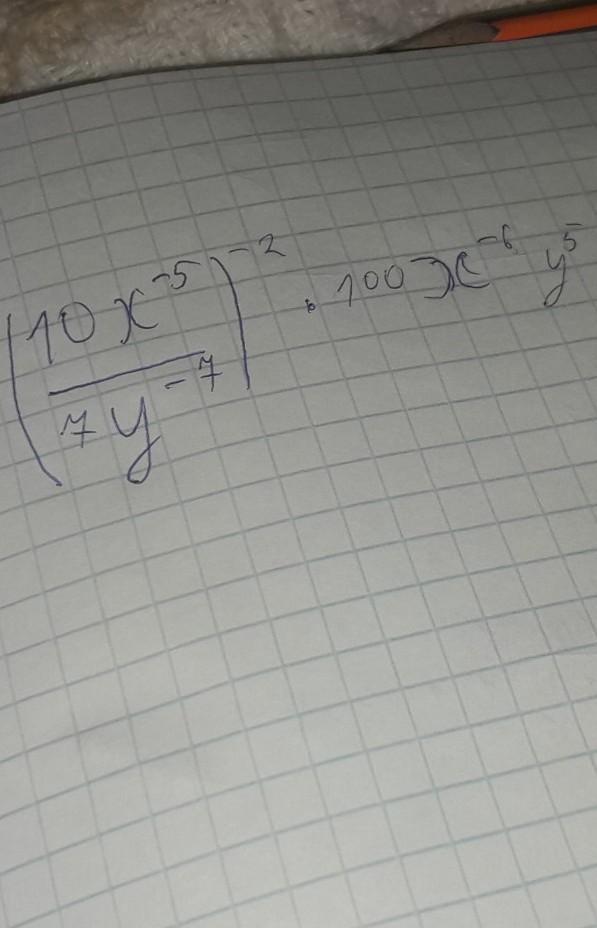 (10x⁻⁵ / 7y⁻⁷)⁻² · 100x⁻⁶ y⁵